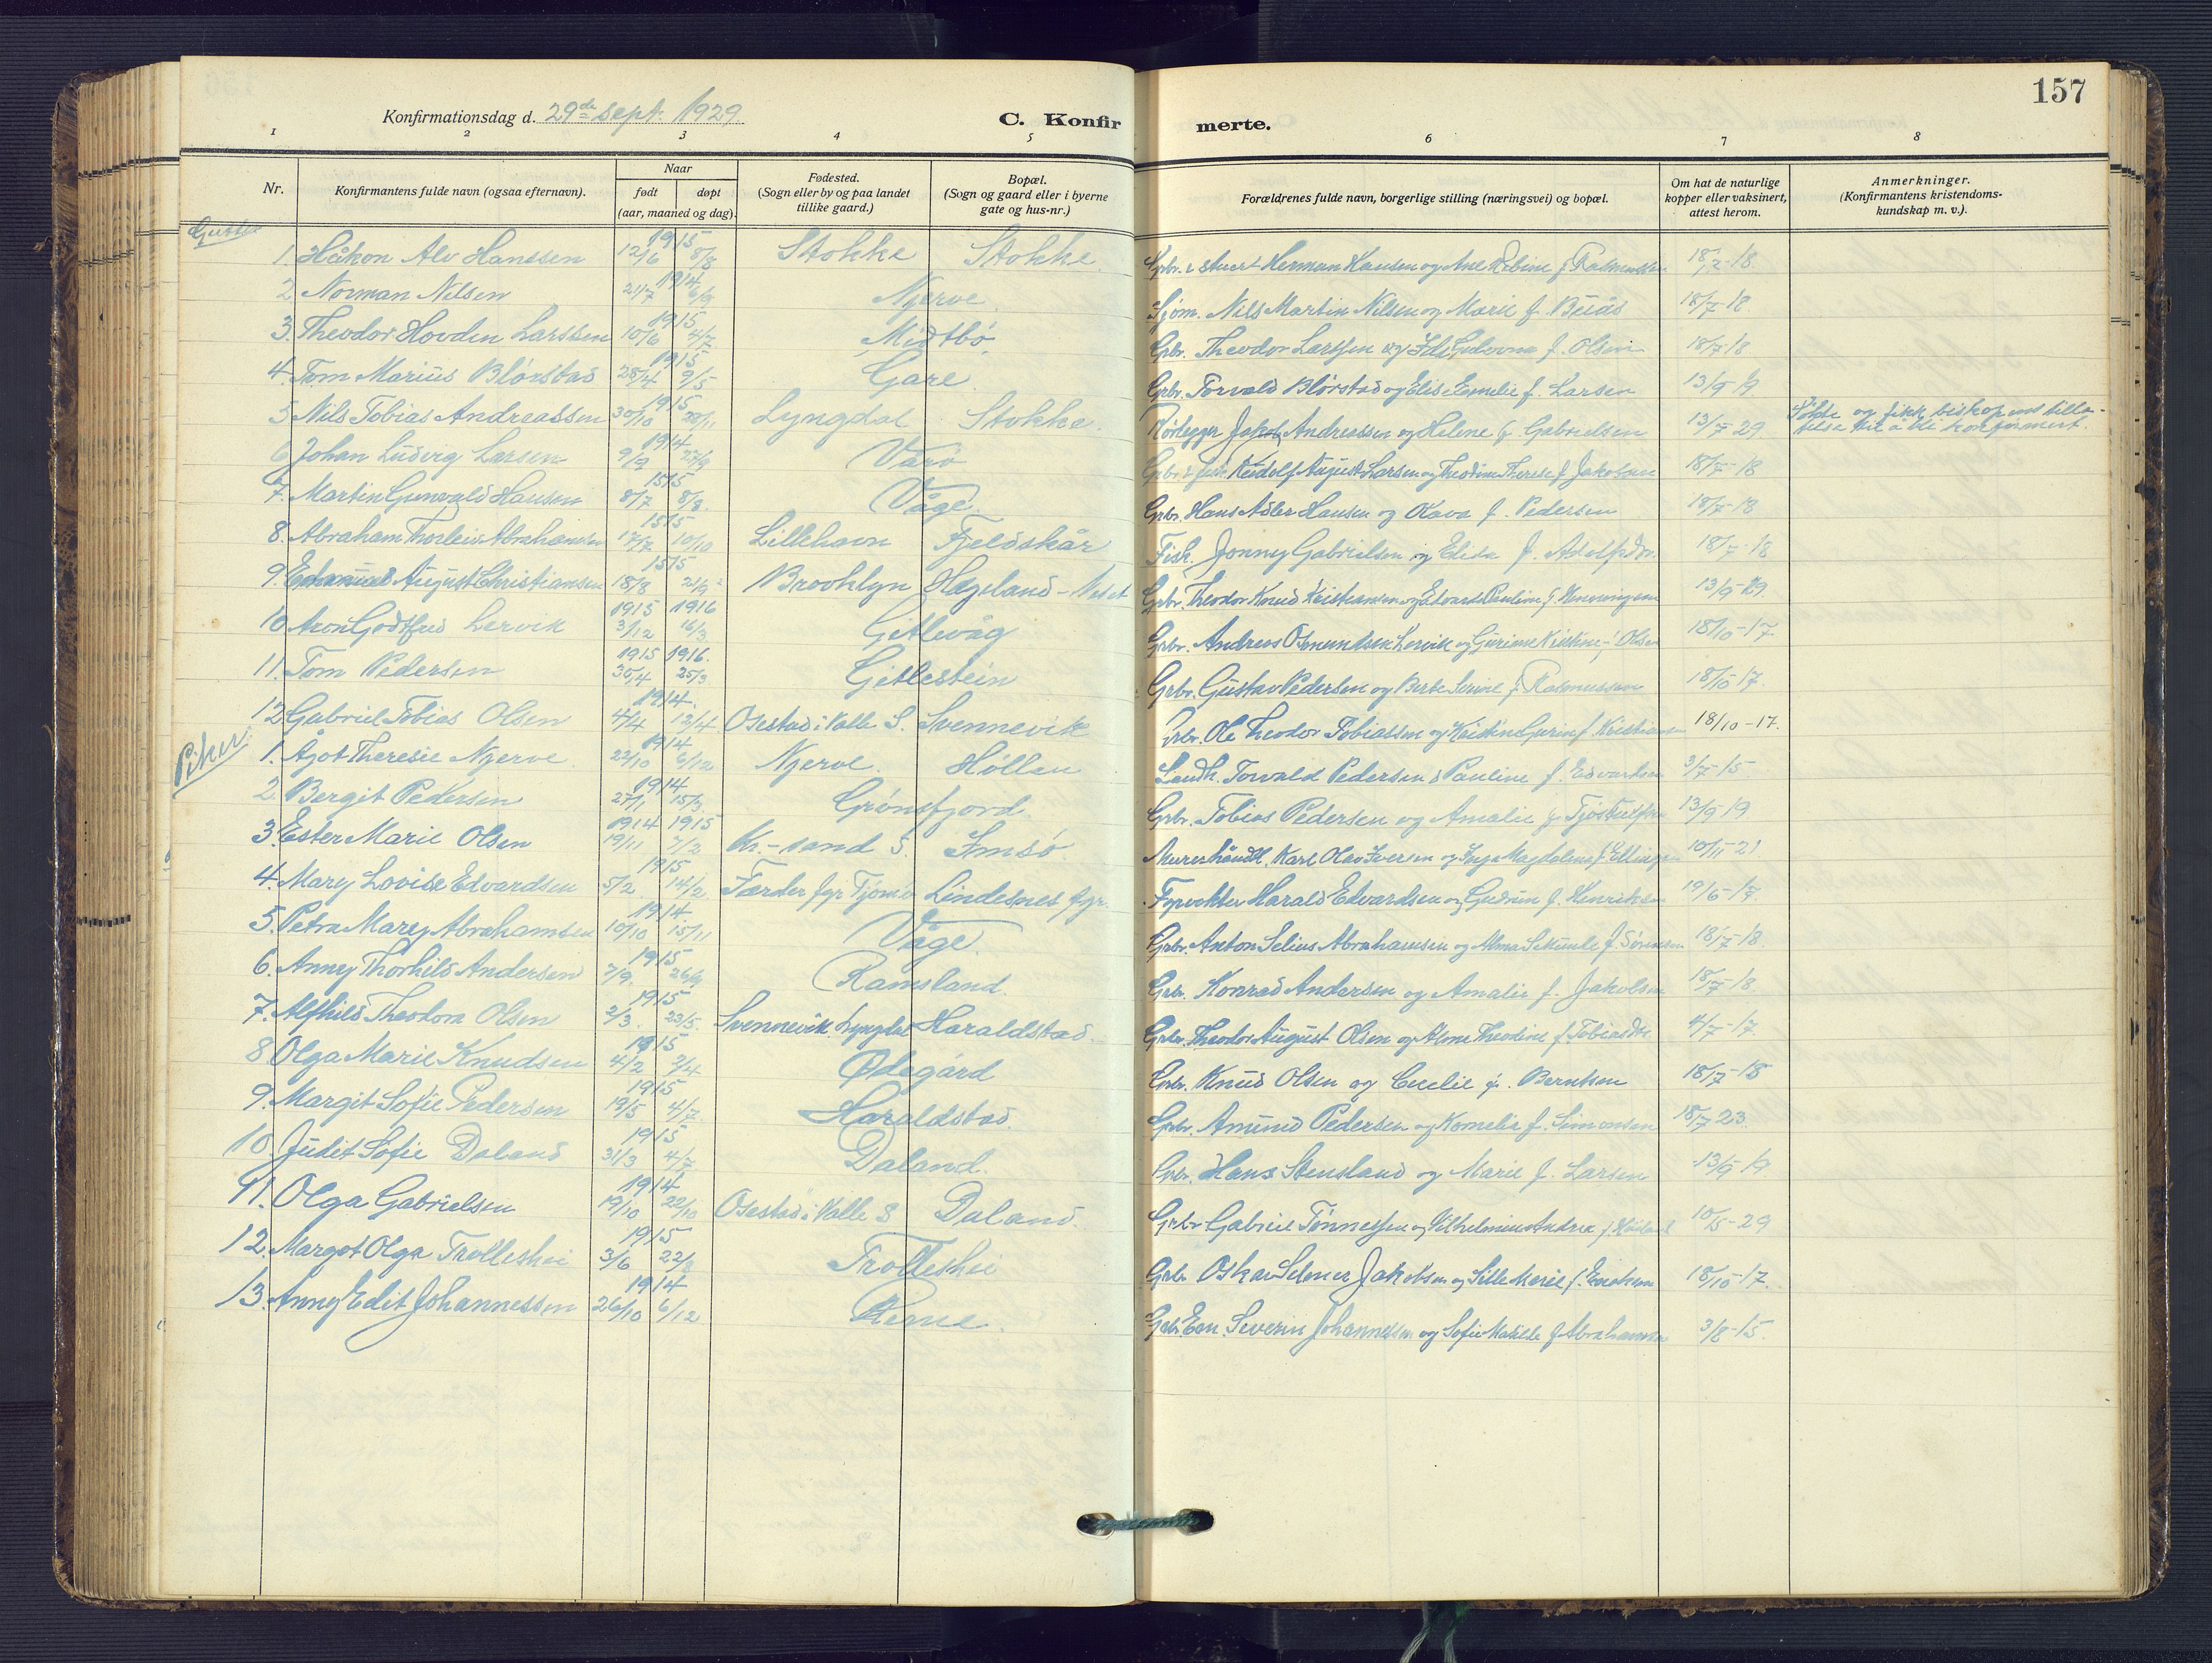 157
Konfirmationsdag d. 29de sept. 1929
C. Konfirmerte.
1 2 3 4 5 6 7 8
Nr.
Konfirmantens fulde navn (ogsaa efternavn).
Naar
født døpt
(aar, maaned og dag).
Fødested.
(Sogn eller by og paa landet
tillike gaard.)
Bopæl.
(Sogn og gaard eller i byerne
gate og hus-nr.)
Forældrenes fulde navn, borgerlige stilling (næringsvei) og bopæl.
Om hat de naturlige
kopper eller vaksinert,
attest herom.
Anmerkninger.
(Konfirmantens kristendoms-
kundskap m. v.).
Gutter
1. Håkon Alv Hanssen 1915 12/6 8/8 Stokke Stokke. Grbr. & stuert Herman Hansen og Ane f. Rasmussen 18/7-18.
2. Norman Nilsen 1914 21/7 6/9 Njerve. Sjøm. Nils Martin Nilsen og Marie f. Buås 18/7-18.
3. Theodor Hovden Larssen 1915 10/6 4/7 Midtbø. Grbr. Theodor Larssen og f. Olsen 18/7-18
4. Tom Marius Blørstad 1915 28/4 9/5 Gare. Grbr. Torvald Blørstad og Elise Emelie f. Larsen 13/9-19.
5. Nils Tobias Andreassen 1915 30/10 28/11 Lyngdal Stokke. Rørlegger Jakob Andreassen og Helene f. Gabrielsen 13/7-29 Søkte og fikk biskopens tilla-
telse til å bli konfirmert.
6. Johan Ludvig Larsen 1914 9/9 27/9 Varø Grbr. & fisk. Rudolf August Larsen og Theodine Therese f. Jakobsen 18/7-18
7. Martin Gunvald Hansen 1915 8/7 8/8. Våge. Grbr. Hans Adler Hansen og Kava f. Pedersen 18/7-18
8. Abraham Thorleiv Abrahamsen 1915 17/7 10/10 Lillehavn Fjeldskår Fisk. Jonny Gabrielsen og Elida f. Adolfsdtr. 18/7-18
9. Edmund August Christiansen 1915 18/8 21/9 Brooklyn Hægeland - Neset Grbr. Theodor Knud Kristiansen og Edvarda Pauline f. Henningsen 13/9-19.
10. Aron Godtfred Lervik 1915 1916 3/12 16/3 Gitlevåg Grbr. Andreas Osmundsen Lervik og Guriane Kristine f. Olsen 18/10-17
11. Tom Pedersen 1915 1916. 30/4 25/3 Gitlestein Grbr. Gustav Pedersen og Berte Serine f. Rasmussen 18/10 17.
12. Gabriel Tobias Olsen 1914. 4/4 12/4 Osestad i Valle S. Svennevik Grbr. Ole Theodor Tobiassen og Kristin Gurine f. Kristiansen 18/10-17.
Piker.
1. Ågot Theresie Njerve. 1914 22/10 6/12 Njerve. Høllen Landh. Torvald Pedersen & Pauline f. Edvardsen 3/7-15
2. Bergit Pedersen 1914 27/1 15/3. Grønsfjord. Grbr. Tobias Pedersen og Amalie f. 13/9-19
3. Ester Marie Olsen 1914 1915 19/11 7/2 Kr.-sand S. Imsø. Murerhåndl. Karl Olav Iversen og Inga Magdalena f. Ellingsen 10/11-21
4. Mary Lovise Edvardsen 1915 5/2 14/2 Færder fyr Tjømø Lindesnes fyr. Fyrvokter Harald Edvardsen og Gudrun f. Henriksen 19/6-17.
5. Petra Mary Abrahamsen 1914 10/10 15/11 Våge. Grbr. Anton Selius Abrahamsen og Alma f. Sørensen 18/7-18.
6. Anny Thorhild Andersen 1915 7/9. 26/9 Ramsland. Grbr. Konrad Andersen og Amalie f. Jakobsen 18/7-18.
7. Alfhild Theodora Olsen 1915 2/3. 23/5. Svennevik Lyngdal Haraldstad. Grbr. Theodor August Olsen og Alma Theodine f. Tobiasdtr. 4/7-17.
8. Olga Marie Knudsen 1915 4/2 7/4 Ødegård Grbr. Knud Olsen og Cecilie f. Berntsen 18/7-18
9. Margit Sofie Pedersen 1915 19/5 4/7. Haraldstad. Grbr. Amund Pedersen og Kornelia f. Simonsen 18/7 23.
10. Judit Sofie Daland 1915 31/3 4/7. Daland. Grbr. Hans Stensland og Marie f. Larsen 13/9-19.
11. Olga Gabrielsen 1914 19/10 22/10 Osestad i Valle S Daland. Grbr. Gabriel Tønnessen og Vilhelmine Andrea f. 10/5-29
12. Margot Olga Trolleshei 1915 3/6 22/8 Trolleshei Grbr. Oskar Selmer Jakobsen og Sille Marie f. 18/10-17.
13. Anny Edit Johannessen 1914 26/10 6/12 Reme. Grbr. Severin Johannessen og Sofie Matilde f. Abrahamsen 3/8-15.